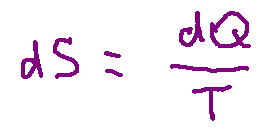 dS = dQ/T